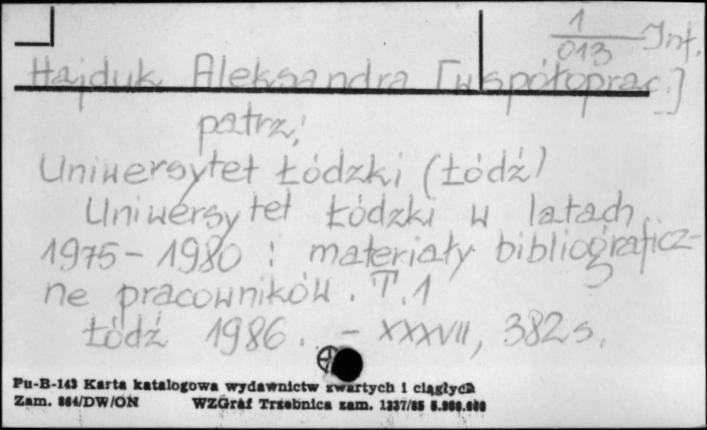 1
013 Inf.
Hajduk Aleksandra [współoprac.]
patrz:
Uniwersytet Łódzki (Łódź)
Uniwersytet Łódzki w latach
1975-1980 : materiały bibliograficz-
ne pracowników. T.1
Łódź 1986. - XXXVII, 382 s.
Pu-B-143 Karta katalogowa wydawnictw zwartych i ciągłych
Zam. 864/DW/ON WZGraf Trzebnica zam. 1337/85 5.000.000